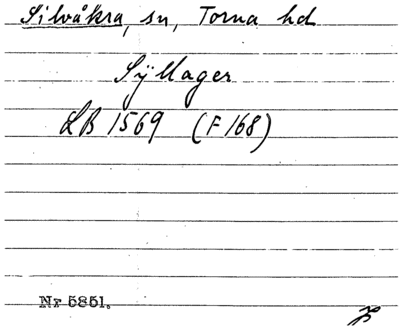 Silvåkra, sn, Torna hd
Syllager
LB 1569 (F 168)
Nr 5851.